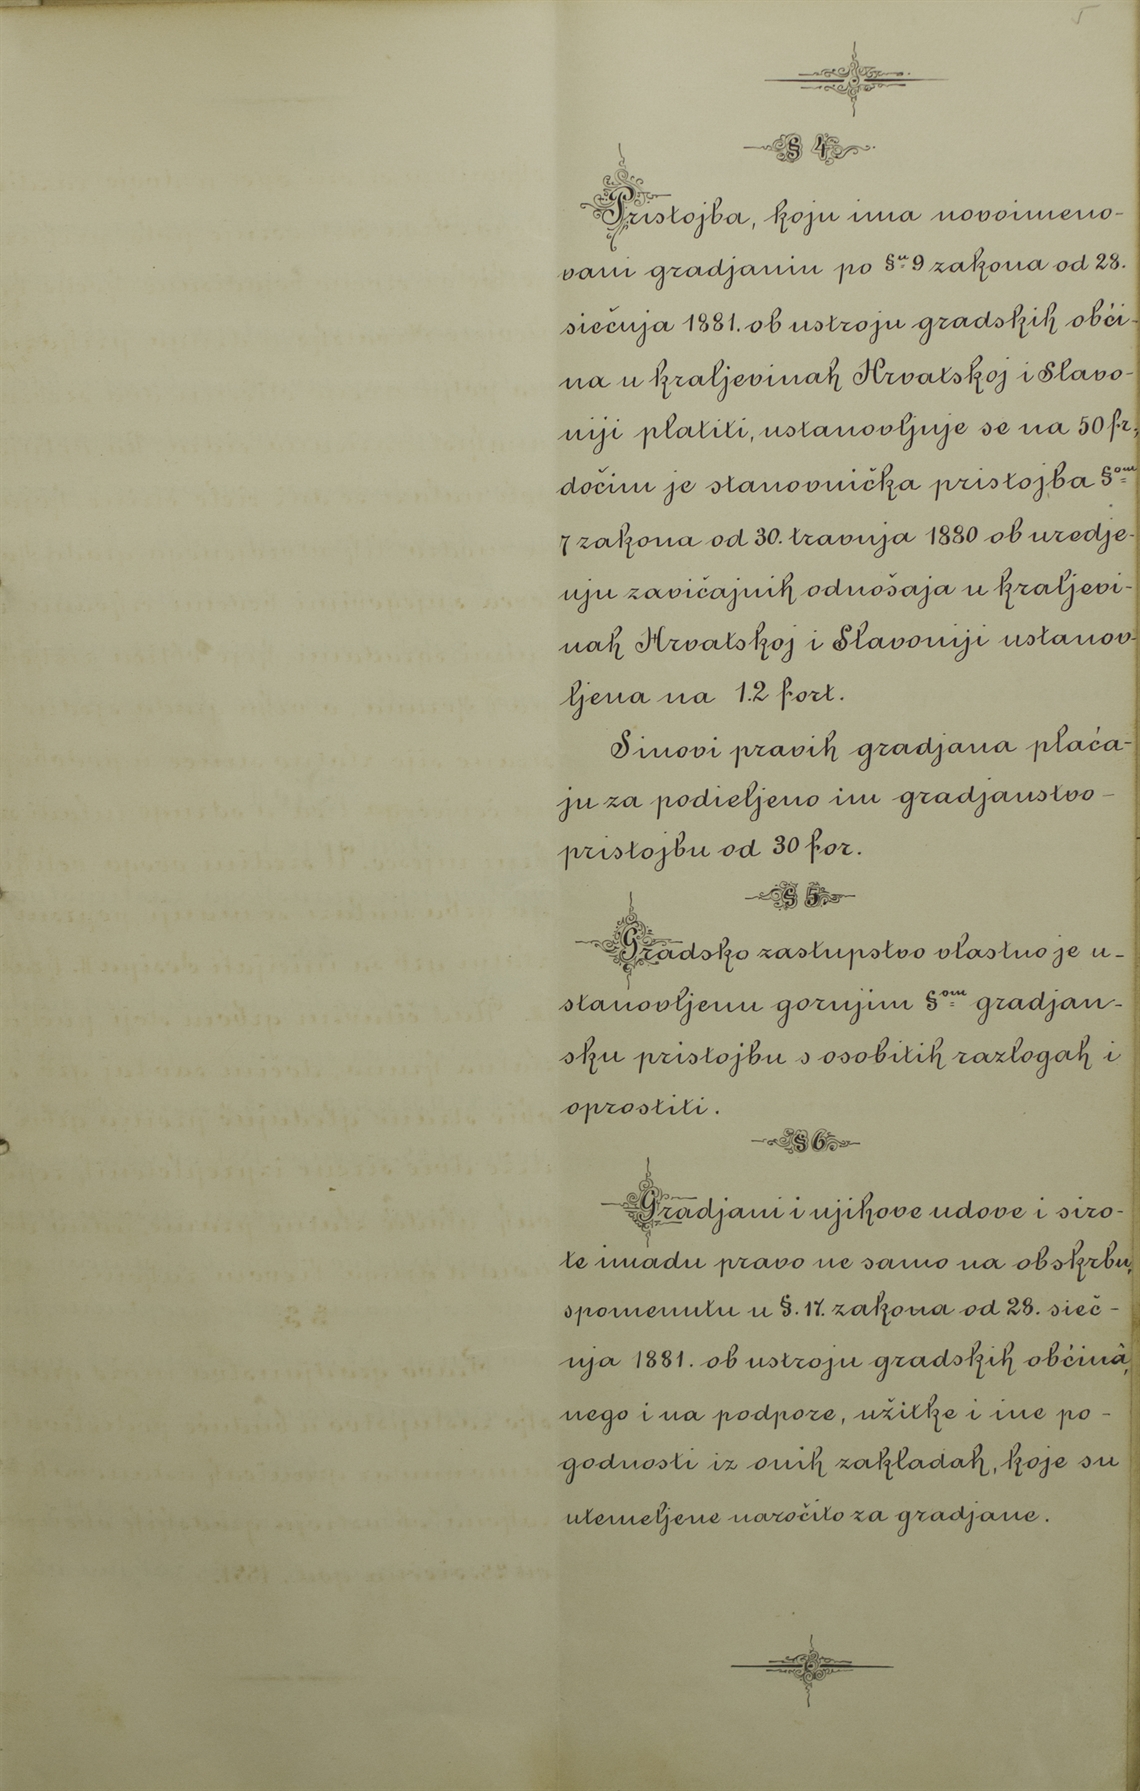 5
§ 4
Pristojba, koju ima novoimeno-
vani gradjanin po §u 9 zakona od 28.
siečnja 1881. ob ustroju gradskih obći-
na u kraljevinah Hrvatskoj i Slavo-
niji platiti, ustanovljuje se na 50 fr,
dočim je stanovnička pristojba §om
7 zakona od 30. travnja 1880 ob uredje-
nju zavičajnih odnošaja u kraljevi-
nah Hrvatskoj i Slavoniji ustanov-
ljena na 1.2 fort.
Sinovi pravih gradjana plaća-
ju za podieljeno im gradjanstvo-
pristojbu od 30 for.
§ 5.
Gradsko zastupstvo vlastno je u-
stanovljenu gornjim §om gradjan-
sku pristojbu s osobitih razlogah i
oprostiti.
§ 6.
Gradjani i njihove udove i siro-
te imadu pravo ne samo na obskrbu,
spomenutu u §. 17. zakona od 28. sieč-
nja 1881. ob ustroju gradskih obćinâ,
nego i na podpore, užitke i ine po-
godnosti iz onih zakladah, koje su
utemeljene naročito za gradjane.